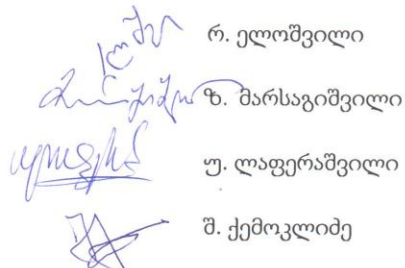 რ. ელოშვილი
ზ. მარსაგიშვილი
უ. ლაფერაშვილი
შ. ქემოკლიძე